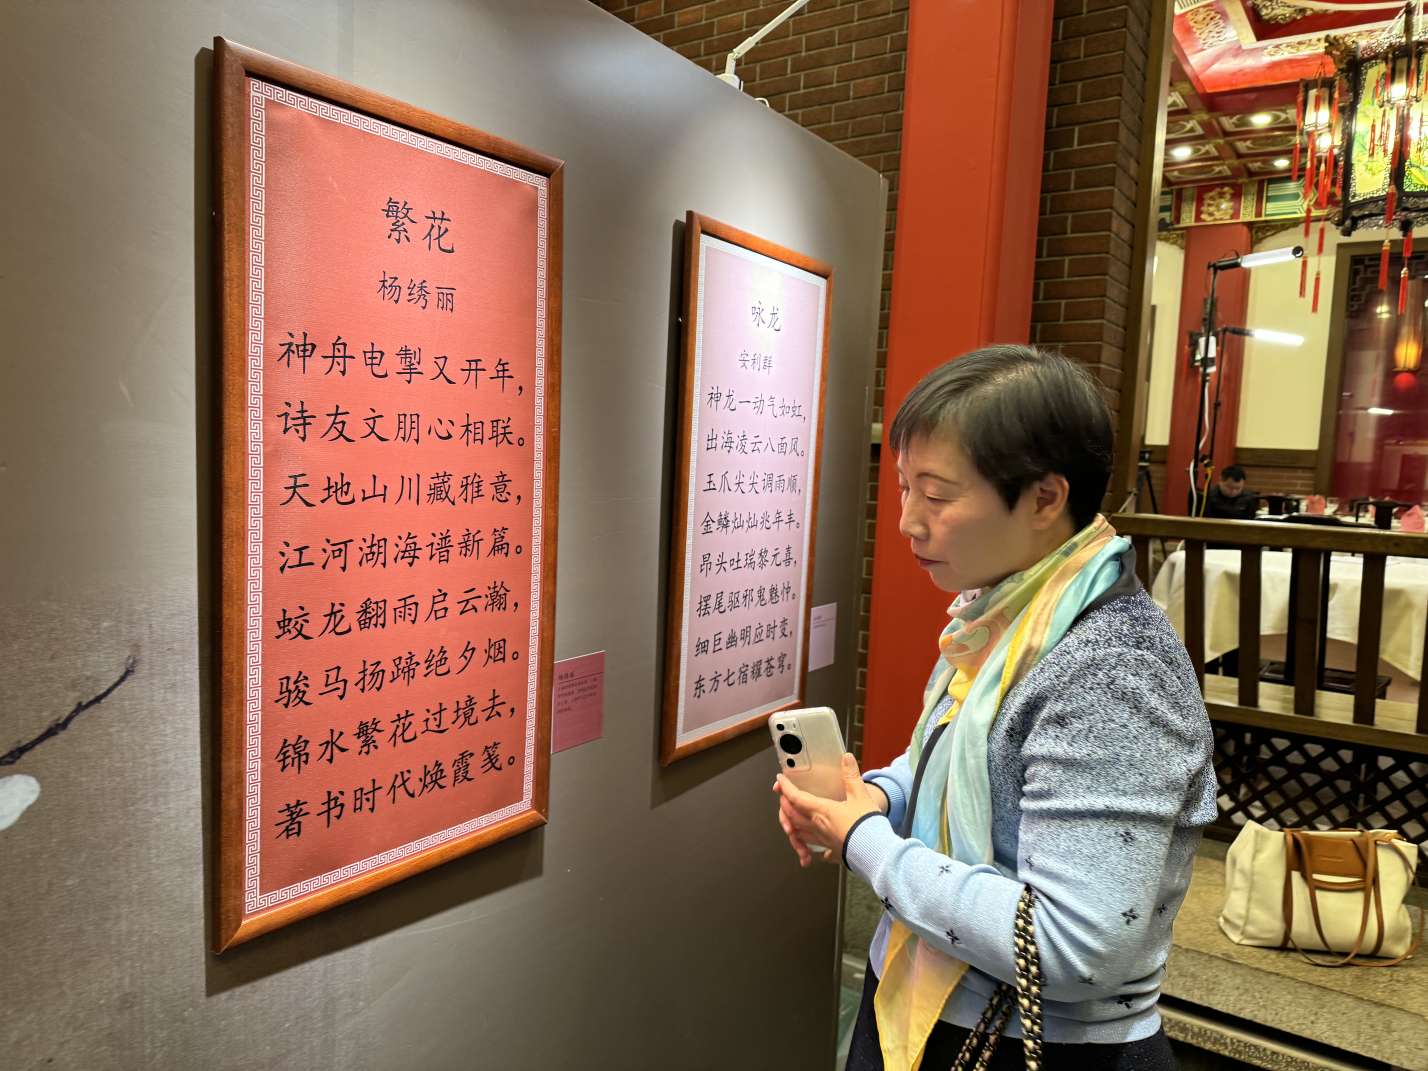 繁花
杨绣丽
神舟电掣又开年，
诗友文朋心相联。
天地山川藏雅意，
江河湖海谱新篇。
蛟龙翻雨启云瀚，
骏马扬蹄绝夕烟。
锦水繁花过境去，
著书时代焕霞笺。
咏龙
安利群
神龙一动气如虹，
出海凌云八面风。
玉爪尖尖调雨顺，
金鳞灿灿兆年丰。
昂头吐瑞黎元喜，
摆尾驱邪鬼魅忡。
细巨幽明应时变，
东方七宿耀苍穹。